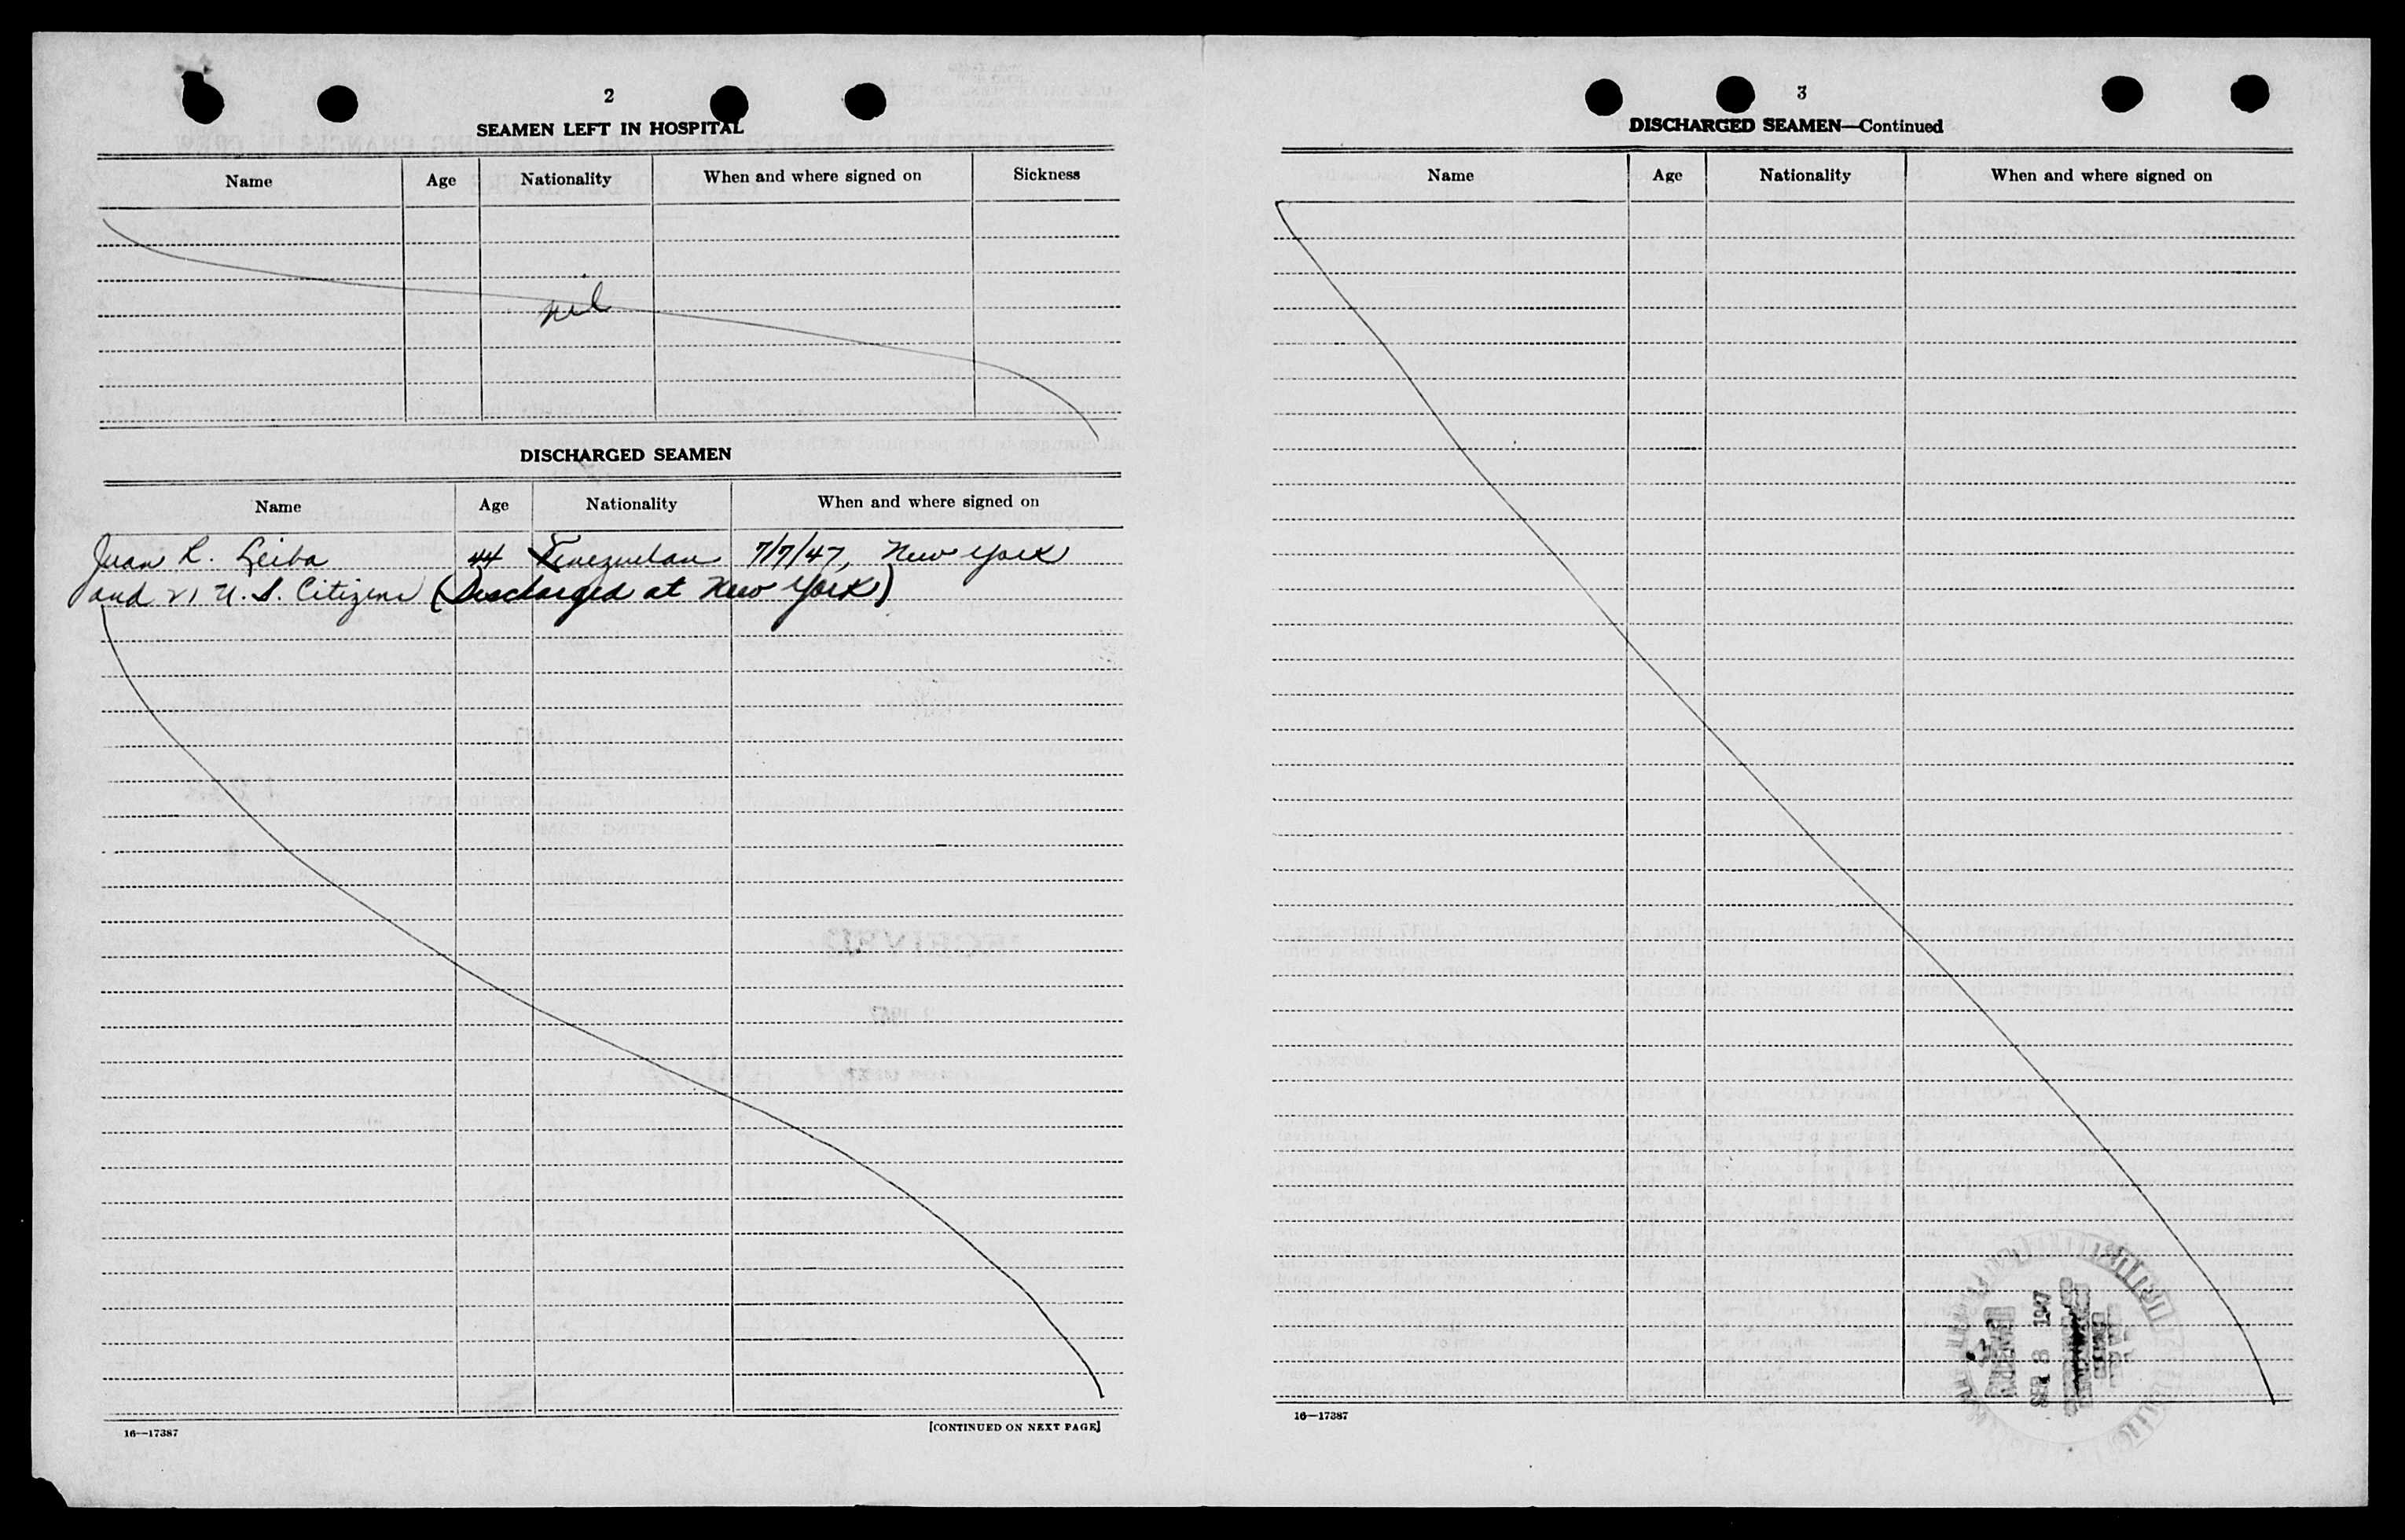 2
SEAMEN LEFT IN HOSPITAL
Name Age Nationality When and where signed on Sickness
nil
DISCHARGED SEAMEN
Name Age Nationality When and where signed on
Juan R. Leiba 44 Venezuelan 7/7/47, New York
and 21 U. S. Citizens (Discharged at New York)
16—17387
[CONTINUED ON NEXT PAGE]
3
DISCHARGED SEAMEN—Continued
Name Age Nationality When and where signed on
SEP 8 1947
16—17387